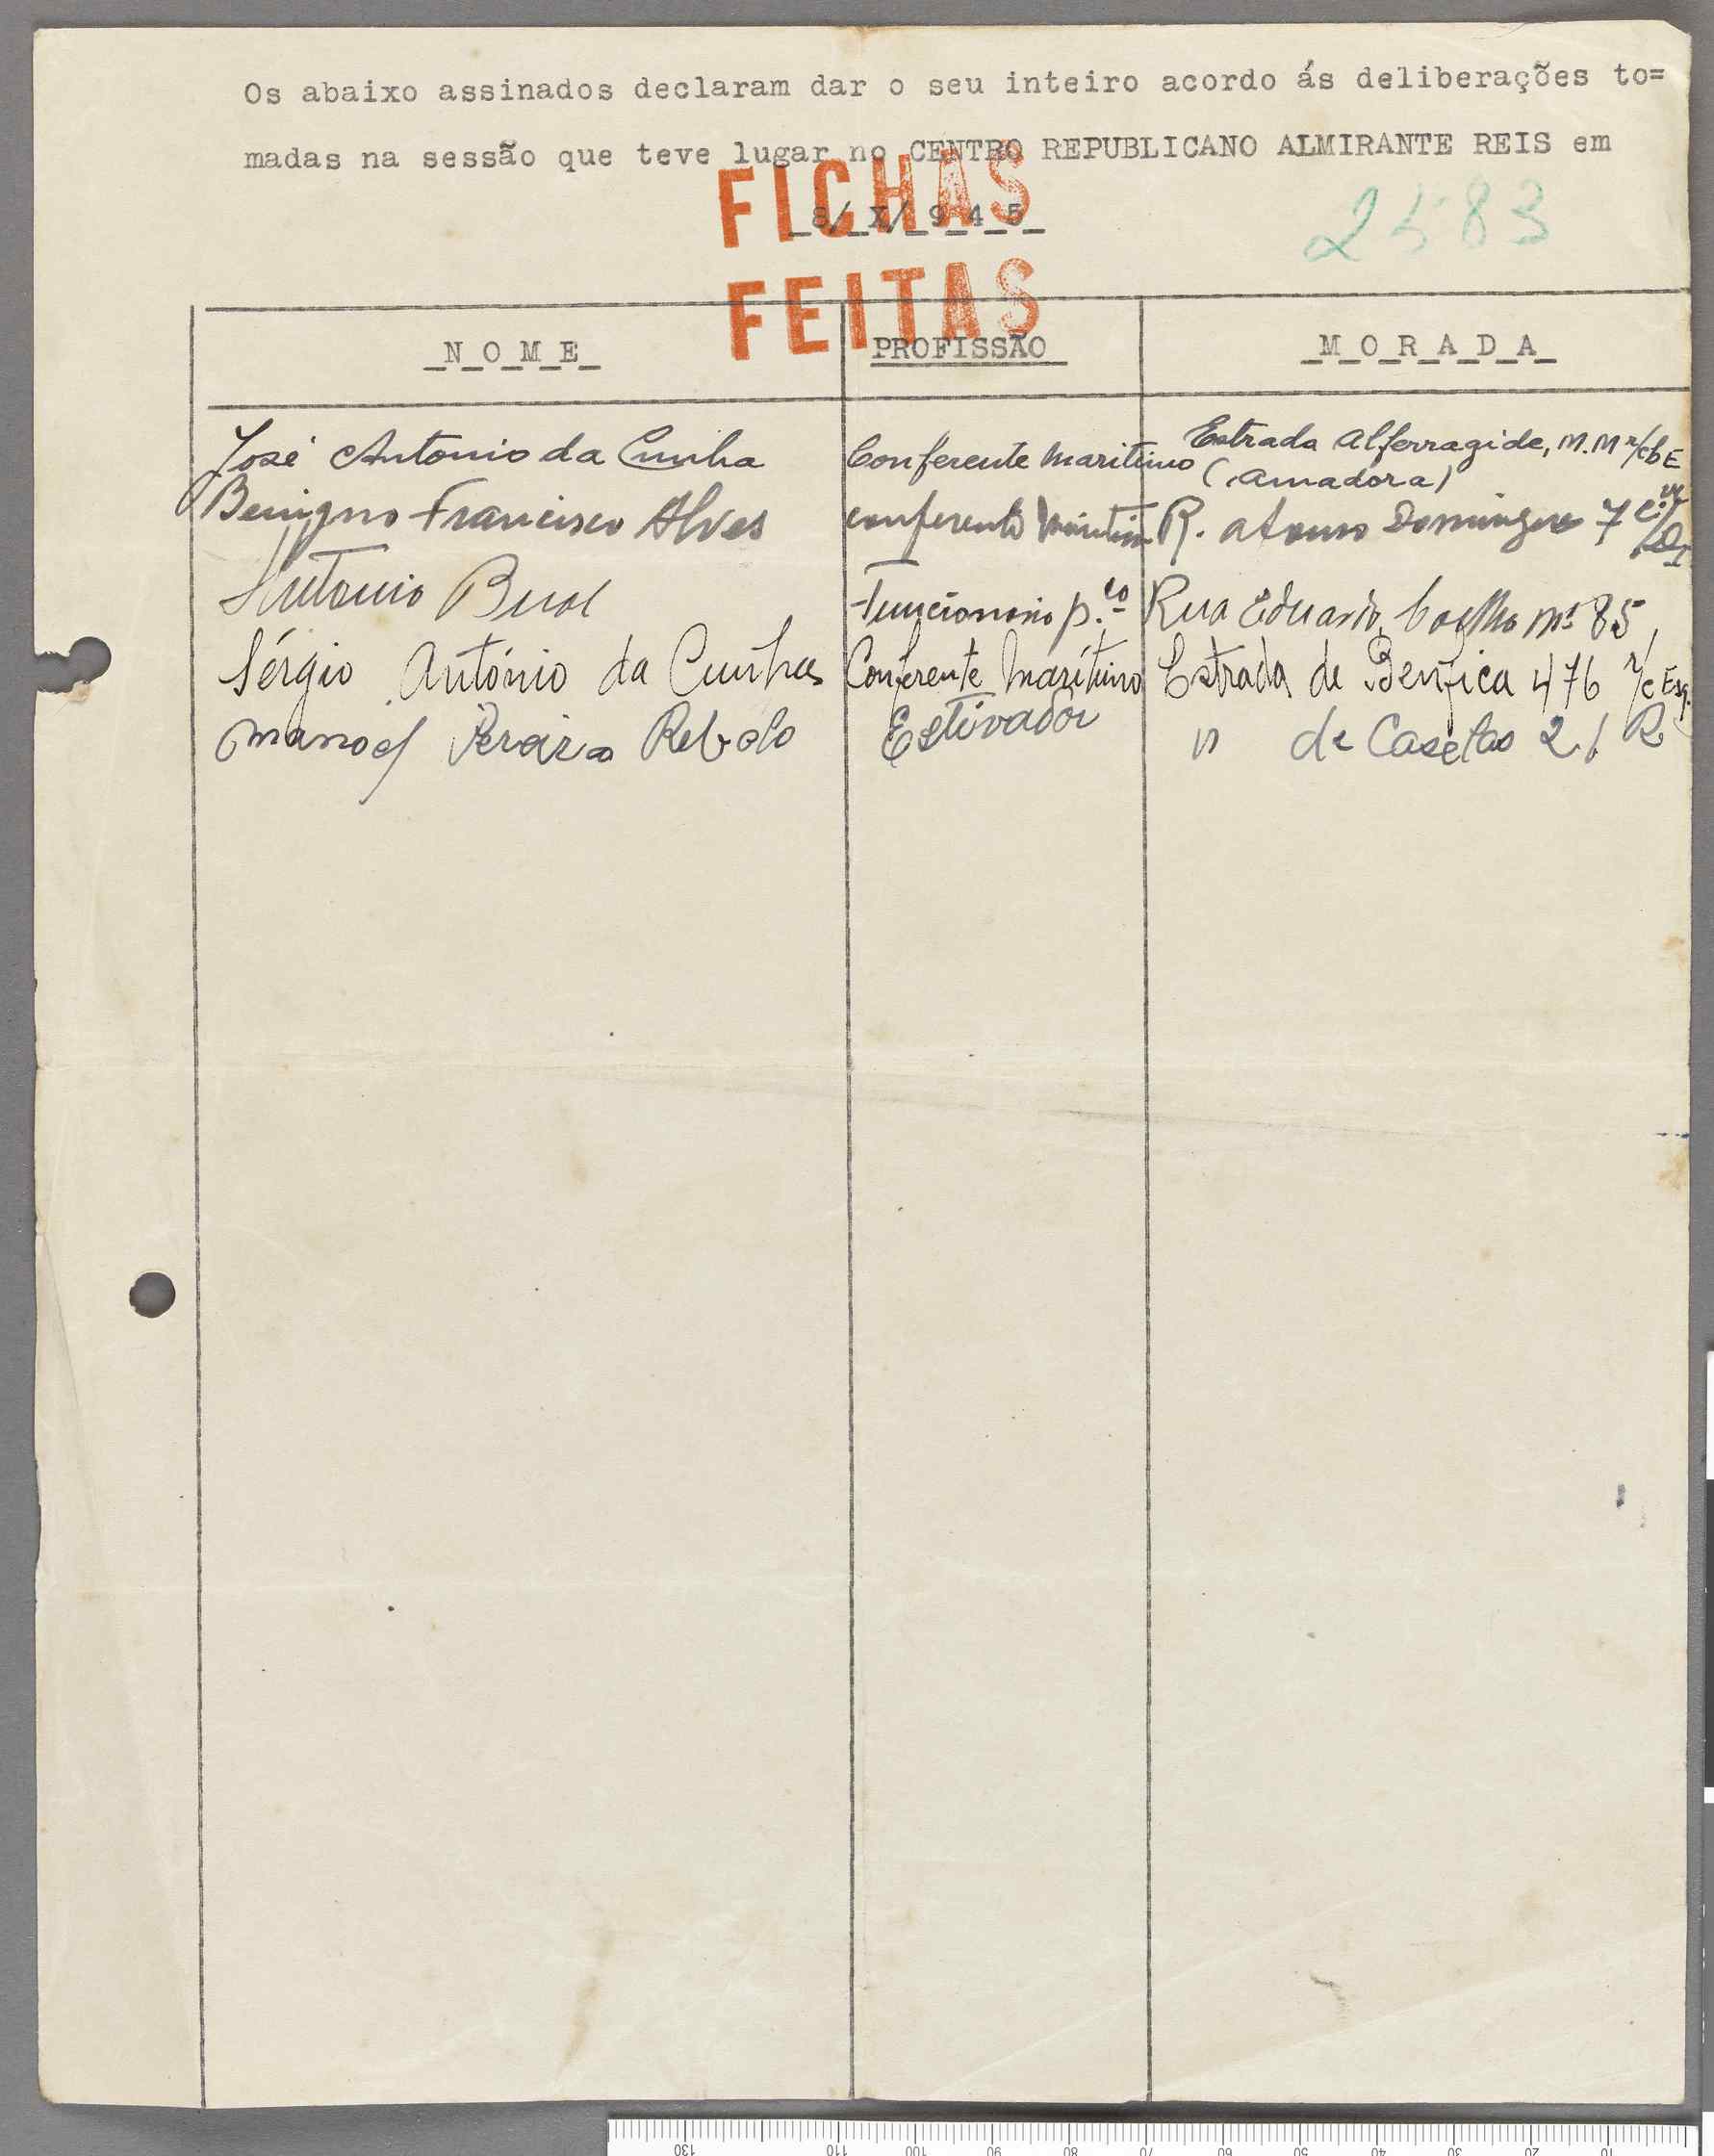 Os abaixo assinados declaram dar o seu inteiro acordo ás deliberações to=
madas na sessão que teve lugar no CENTRO REPUBLICANO ALMIRANTE REIS em
8/X/945
FICHAS
FEITAS
2583
NOME PROFISSÃO MORADA
José Antonio da Cunha Conferente Maritimo Estrada Alferragide, M.M r/c E
(Amadora)
Benigno Francisco Alves conferente Maritimo R. Afonso Domingues 7
Antonio Funcionario p.co Rua Eduardo Coelho nº 85
Sérgio António da Cunha Conferente Marítimo Estrada de Benfica 476 r/c Esq.
Manoel Pereira Rebelo Estivador " de Caselas 21 R
130 110 100 90 80 70 60 50 40 30 20 10